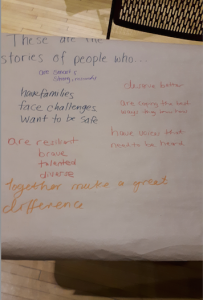 These are the
stories of people who...
are smart &
strong, resourceful
have families
face challenges
want to be safe
deserve better
are coping the best
ways they know how
are resilient
brave
talented
diverse
have voices that
need to be heard
Together make a great
difference